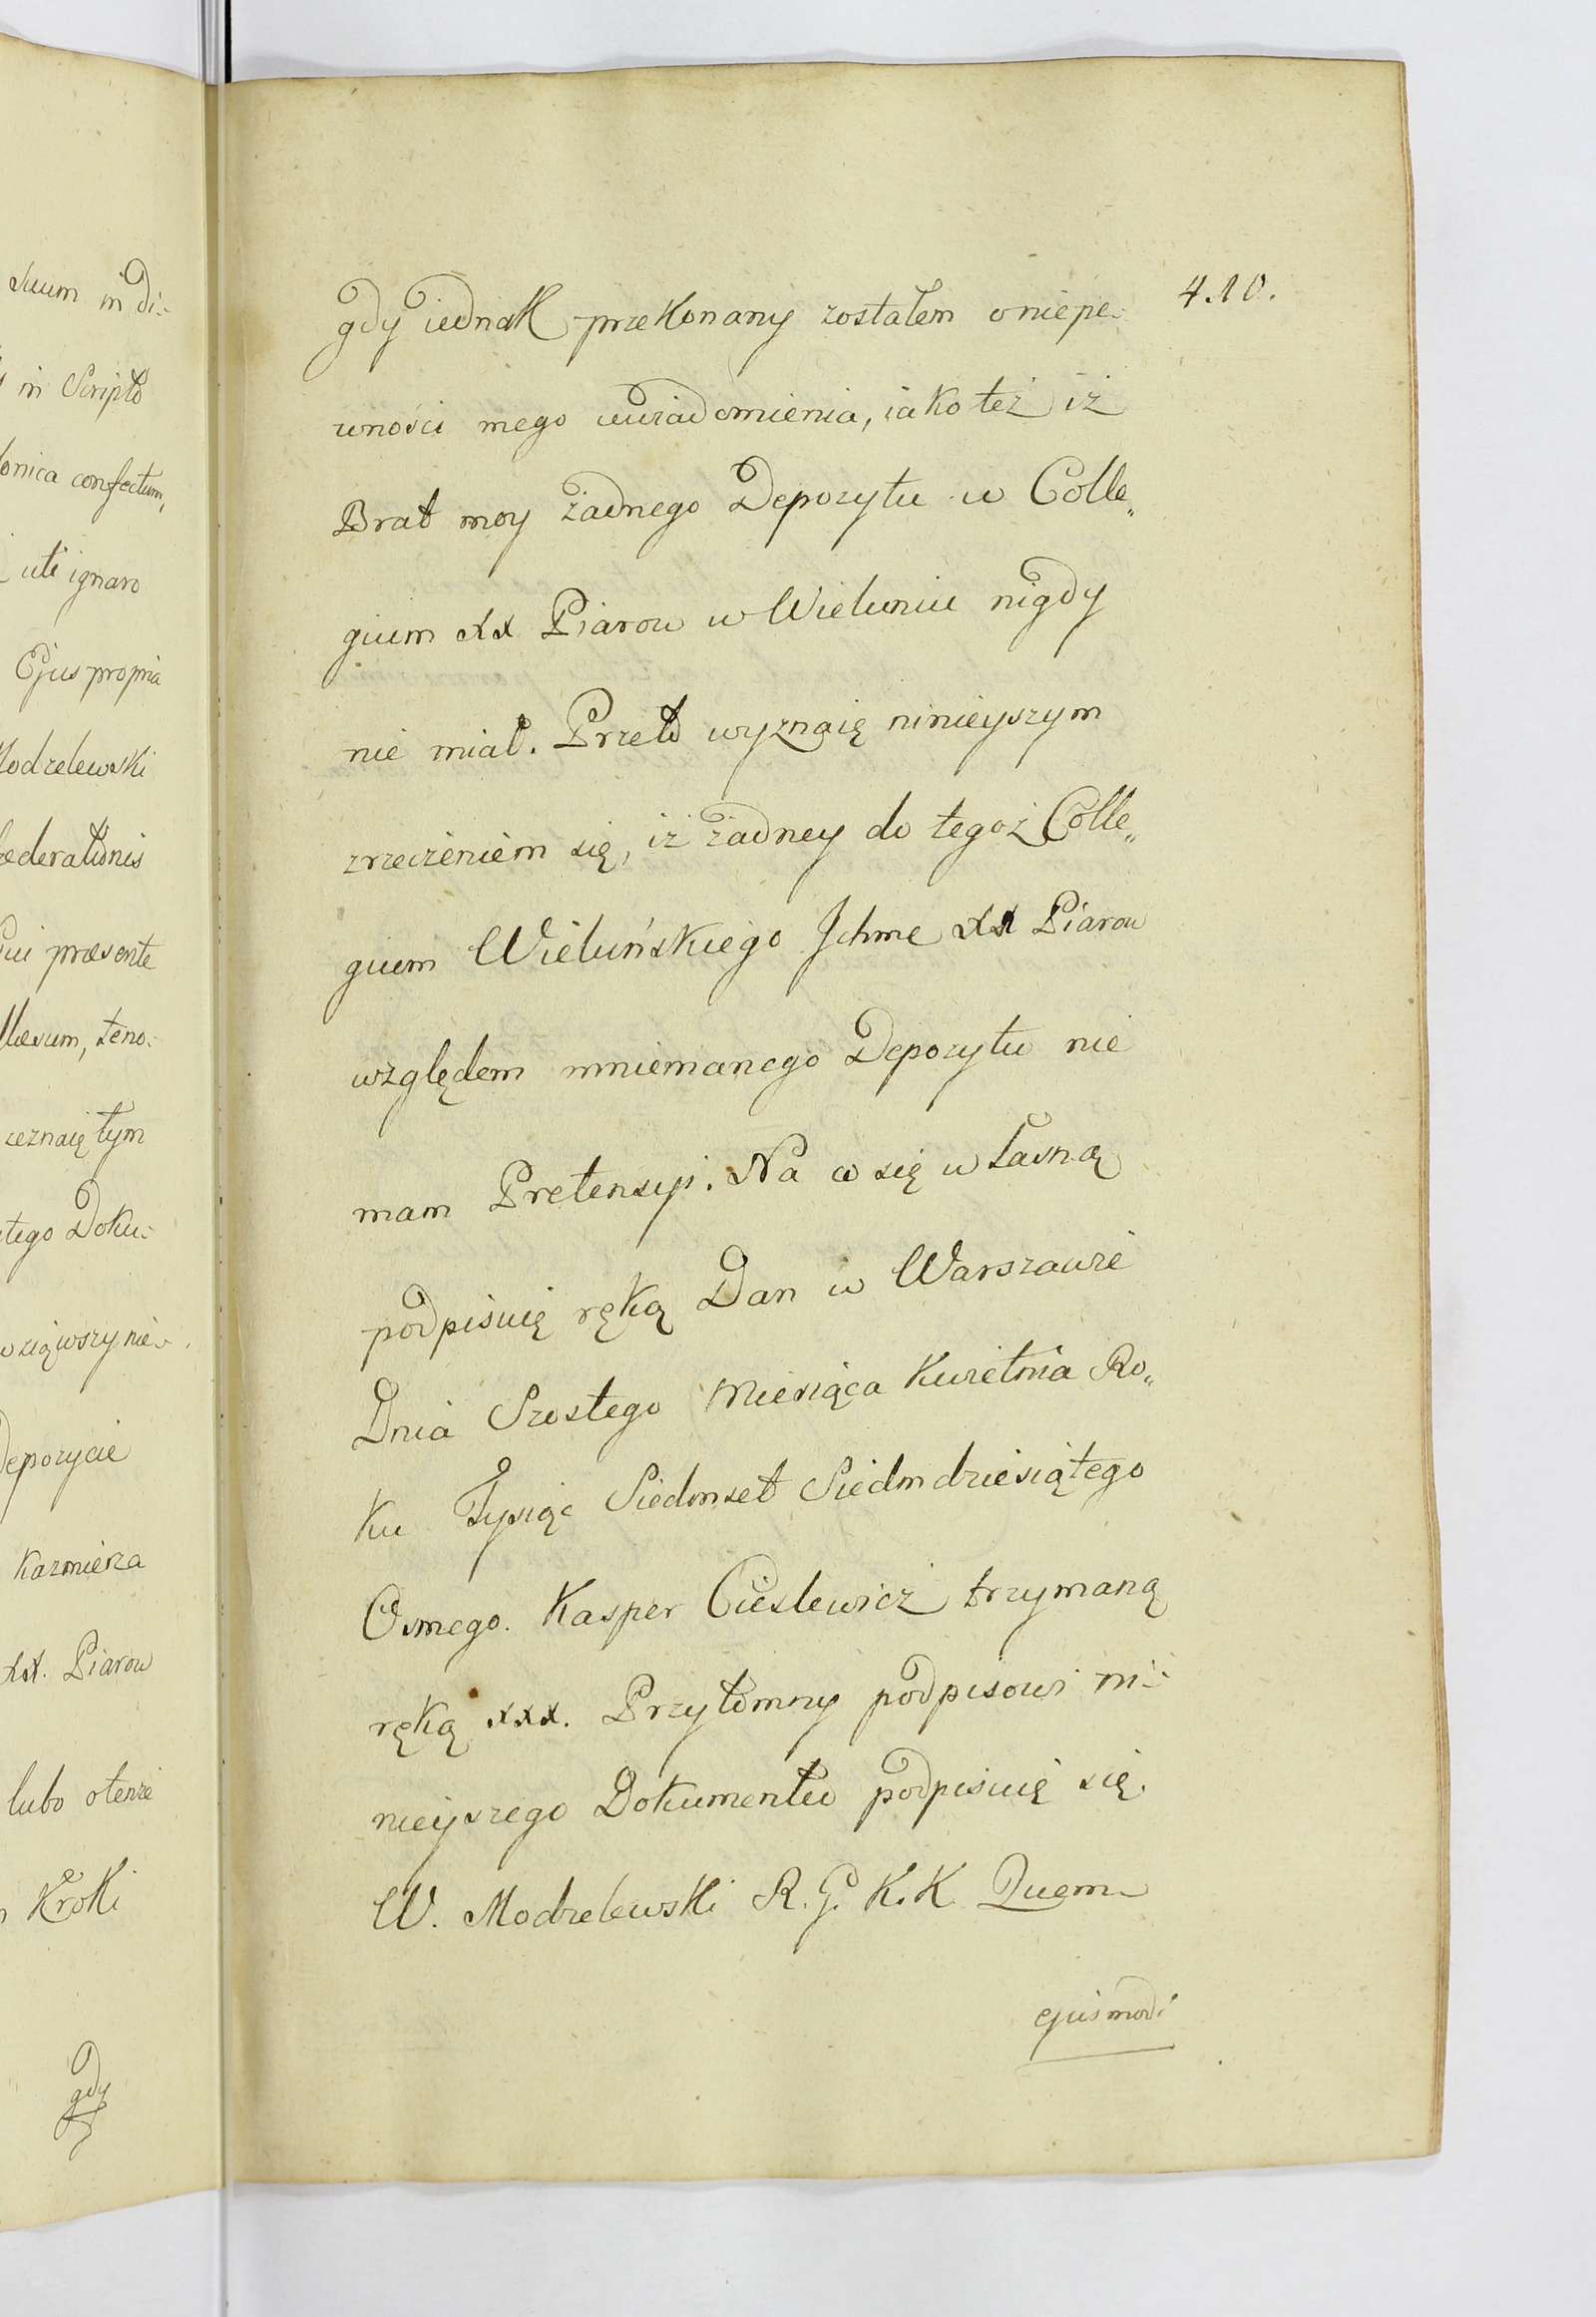 suum in Di-
in Scripto
onica confectum,
uti ignaro
Ejus propria
Modzelewski
foederationis
Sui præsente
llæsum, teno-
zeznaię tym
tego Doku-
wziąwszy nie-
Depozycie
Kazmierza
xx. Piarow
lubo otenże
Kroki
gdy
4.10.
gdy iednak przekonany zostałem oniepe-
wności mego uwiadomienia, iako też iż
Brat moy żadnego Depozytu w Colle„
gium xx Piarow w Wieluniu nigdy
nie miał. Przeto wyznaię ninieyszym
zrzeczeniem się, iż żadney do tegoż Colle„
gium Wieluńskiego Jchme xx Piarow
względem mniemanego Depozytu nie
mam Pretensyi. Na co się własną
podpisuię ręką Dan w Warszawie
Dnia Szostego Miesiąca Kwietnia Ro„
ku Tysiąc Siedmset Siedmdziesiątego
Osmego. Kasper Cieslewicz trzymaną
ręką xxx. Przytomny podpisowi ni-
nieyszego Dokumentu podpisuię się.
W. Modzelewski R. G. K. K Quem
ejusmodi